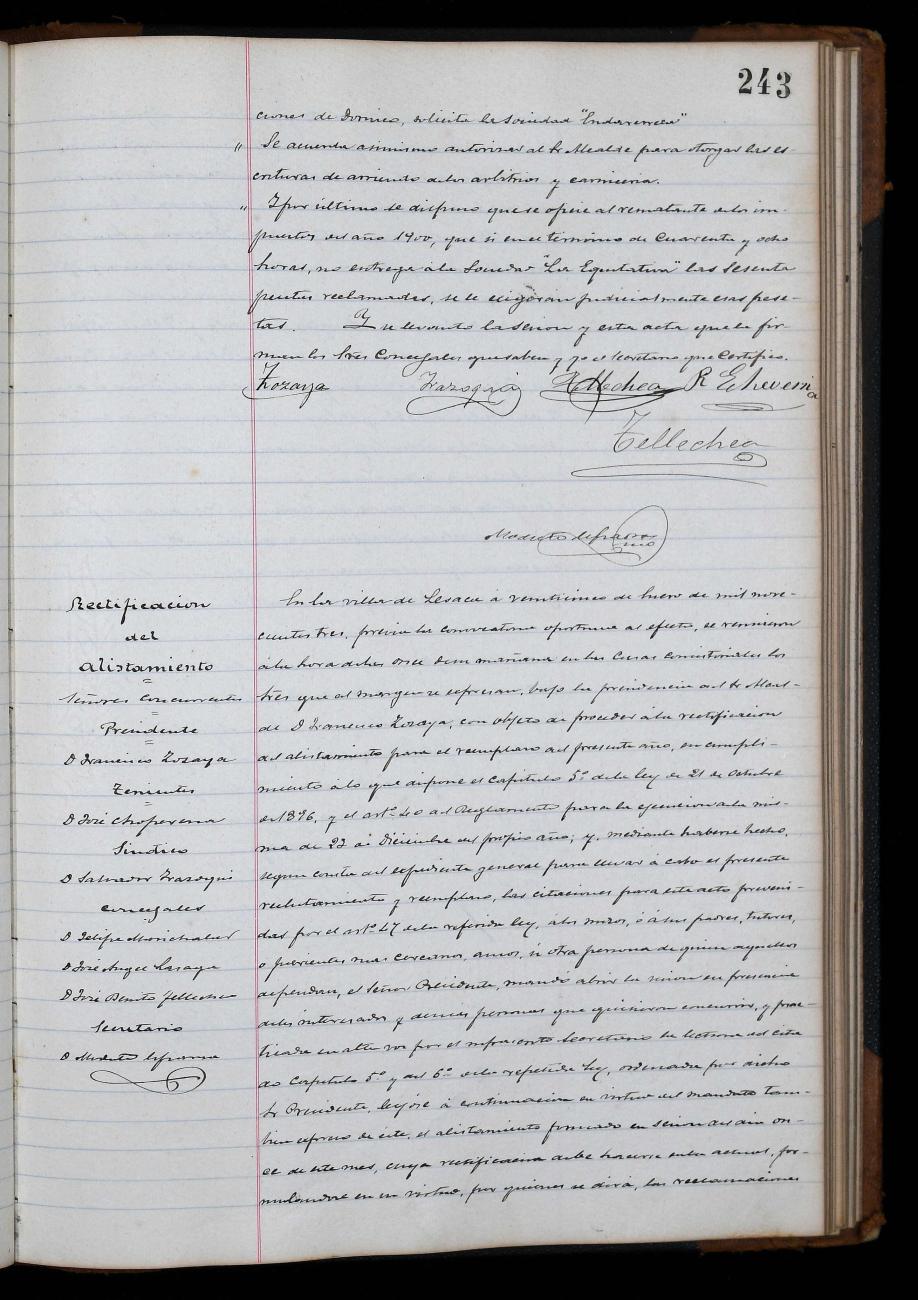 243
ciones de dominio, solicita la Sociedad "Endarrerreca"
" Se acuerda asimismo autorizar al Sr Alcalde para otorgar las es-
crituras de arriendo de los arbitrios y carniceria.
" Y por último se dispuso que se oficie al rematante de los im-
puestos del año 1900, que si en el término de cuarenta y ocho
horas, no entrega á la Sociedad "La Equitativa" las sesenta
pesetas reclamadas, se le exigirán judicialmente esas pese-
tas. Y se levantó la sesion y esta acta que la fir-
man los Sres Concejales que saben y yo el Secretario que certifico.
Zozaya Irazoqui Tellechea R Echeverria
Tellechea
Modesto
Rectificacion
del
alistamiento
Señores Concurrentes
Presidente
D Francisco Zozaya
Tenientes
D José Choperena
Sindico
D Salvador Irazoqui
Concejales
D Felipe Marichalar
D José Angel Lasaga
D José Benito Tellechea
Secretario
D Modesto
En la villa de Lesaca á veinticinco de Enero de mil nove-
cientos tres, previa la convocatoria oportuna al efecto, se reunieron
á la hora de las once de su mañana en las Casas consistoriales los
Sres que al margen se expresan, bajo la presidencia del Sr Alcal-
de D Francisco Zozaya, con objeto de proceder á la rectificacion
del alistamiento para el reemplazo del presente año, en cumpli-
miento á lo que dispone el Capitulo 5º de la ley de 21 de Octubre
de 1896, y el artº 40 del Reglamento para la ejecucion de la mis-
ma de 23 de Diciembre del propio año; y, mediante haberse hecho,
segun consta del expediente general para llevar á cabo el presente
reclutamiento y reemplazo, las citaciones para este acto preveni-
das por el artº 47 de la referida ley, á los mozos, ó á sus padres, tutores,
o parientes mas cercanos, amos, ú otra persona de quien aquellos
dependan, el Señor Presidente, mandó abrir la sesion en presencia
de los interesados y demas personas que quisieron concurrir, y prac-
ticada en alta voz por el infrascrito Secretario la lectura del cita-
do Capitulo 5º y del 6º de la repetida ley, ordenada por dicho
Sr Presidente, leyóse á continuacion en virtud del mandato tam-
bien expreso de éste, el alistamiento formado en sesion del dia on-
ce de este mes, cuya rectificacion debe hacerse en los actuos, for-
mulandose en su virtud, por quienes se dirá, las reclamaciones